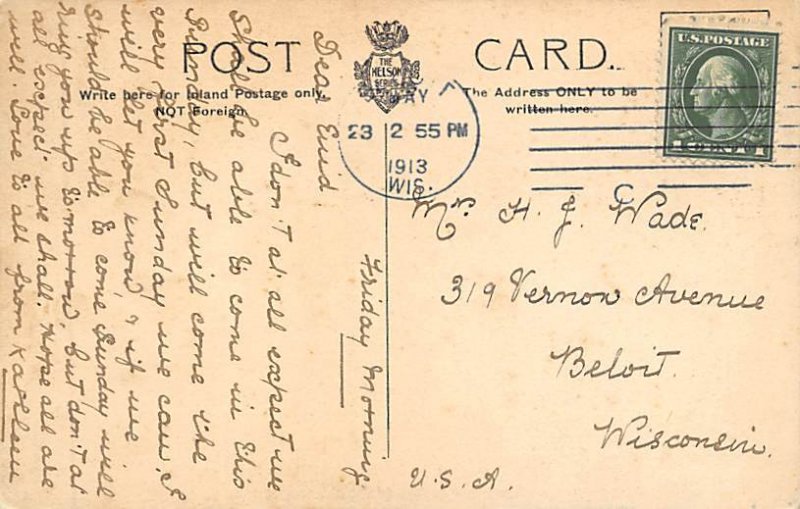 POST CARD.
THE
NELSON
SERIES
Write here for Inland Postage only,
NOT Foreign.
The Address ONLY to be
written here.
U.S. POSTAGE
1 1
MAY
23 2 55 PM
1913
WIS.
Friday Morning
Dear Enid
I don't at all expect we
Shall be able to come in this
Sunday, but will come the
very first Sunday we can. I
will let you know, & if we
should be able to come Sunday will
ring you up to-morrow, but don't at
all expect we shall. Hope all are
well. Love to all from Kathleen
Mrs. H. J. Wade.
319 Vernon Avenue
Beloit.
Wisconsin.
U.S.A.